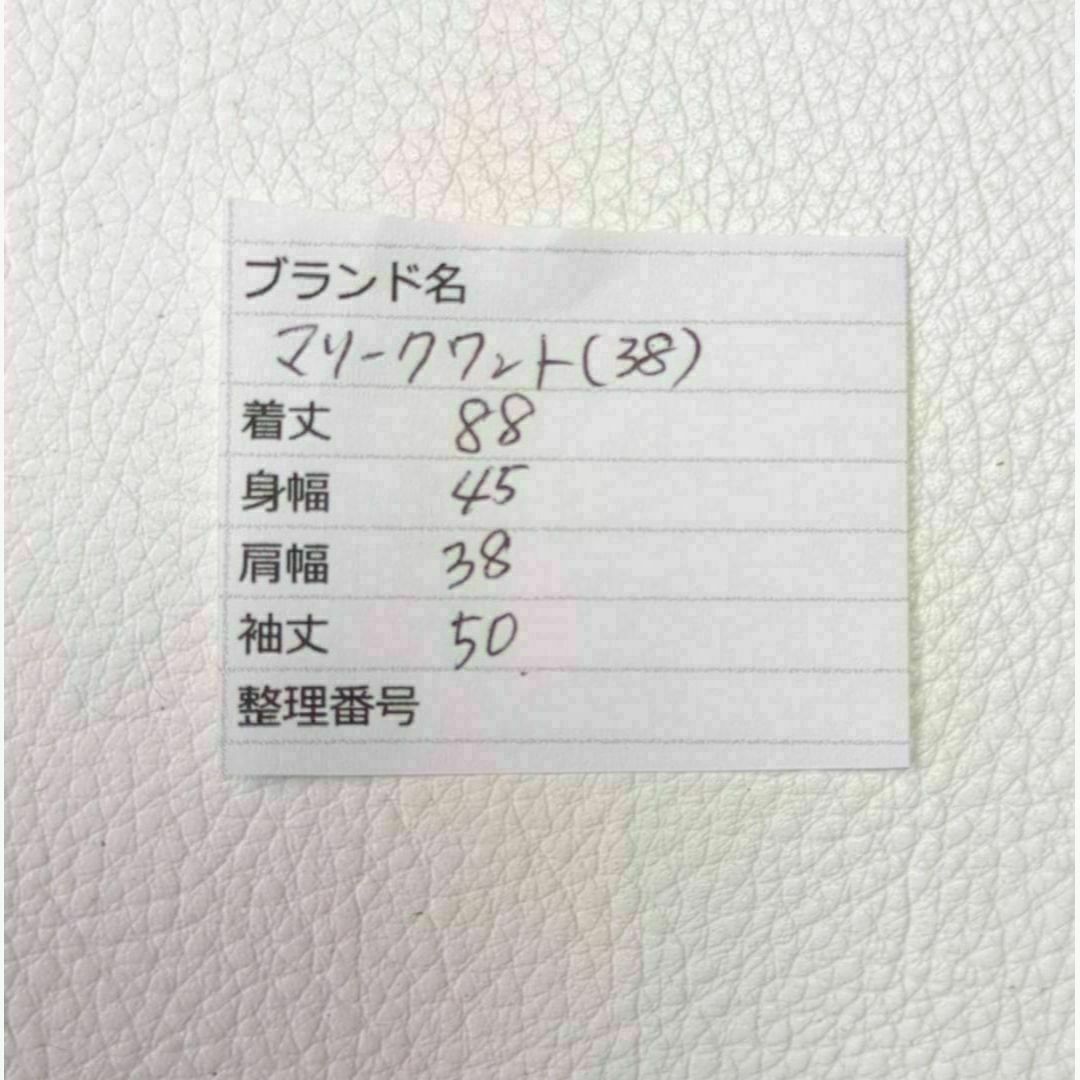 ブランド名
マリークワント(38)
着丈 88
身幅 45
肩幅 38
袖丈 50
整理番号